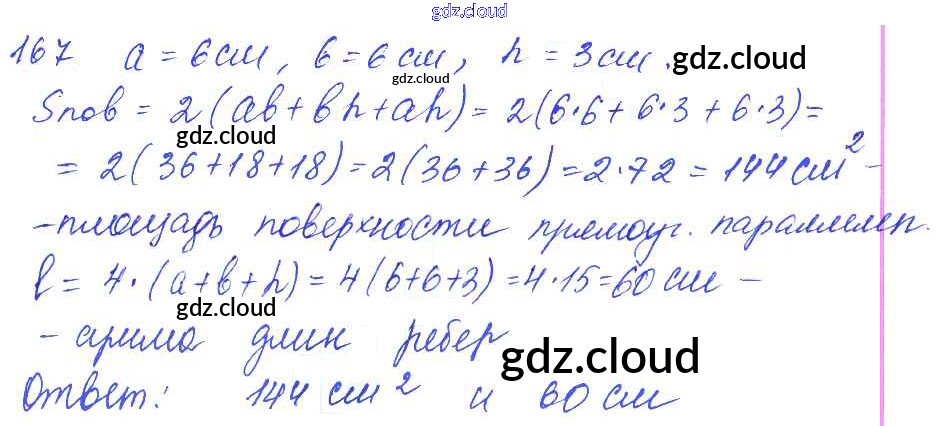 gdz.cloud
167 a = 6 см, в = 6 см, h = 3 см.
gdz.cloud gdz.cloud
Sпов = 2(ab+bh+ah) = 2(6·6+6·3+6·3) =
gdz.cloud
= 2(36+18+18) = 2(36+36) = 2·72 = 144 см² -
gdz.cloud
- площадь поверхности прямоуг. параллелеп.
l = 4·(a+b+h) = 4(6+6+3) = 4·15 = 60 см -
gdz.cloud
- сумма длин ребер
gdz.cloud
Ответ: 144 см² и 60 см